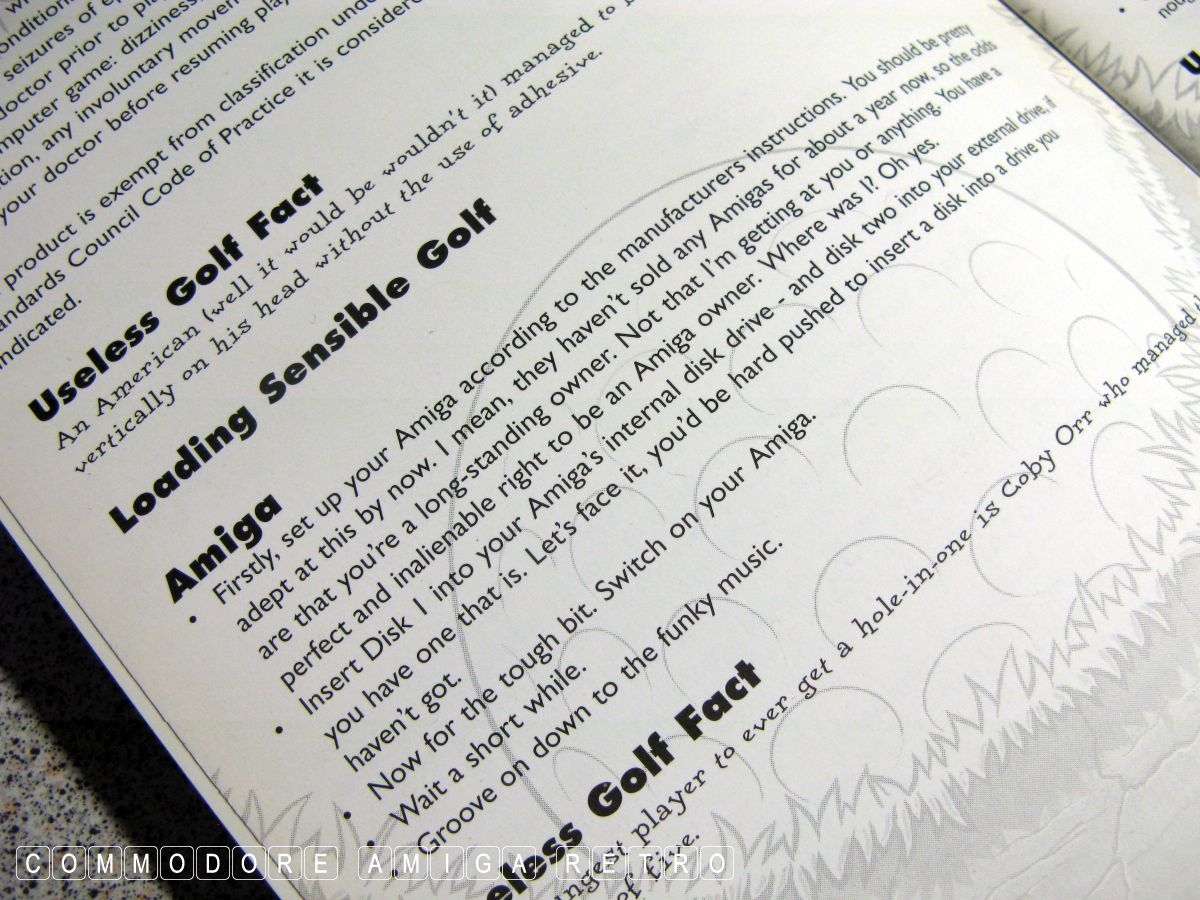 conditions
seizures of ep
doctor prior to play
mputer game: dizziness,
tion, any involuntary movem
your doctor before resuming play
product is exempt from classification unde
andards Council Code of Practice it is considere
indicated.
Useless Golf Fact
An American (well it would be wouldn't it) managed to
vertically on his head without the use of adhesive.
Loading Sensible Golf
Amiga
• Firstly, set up your Amiga according to the manufacturers instructions. You should be pretty
adept at this by now. I mean, they haven't sold any Amigas for about a year now, so the odds
are that you're a long-standing owner. Not that I'm getting at you or anything. You have a
perfect and inalienable right to be an Amiga owner. Where was I? Oh yes.
• Insert Disk 1 into your Amiga's internal disk drive - and disk two into your external drive, if
you have one that is. Let's face it, you'd be hard pushed to insert a disk into a drive you
haven't got.
• Now for the tough bit. Switch on your Amiga.
• Wait a short while.
• Groove on down to the funky music.
eless Golf Fact
ungest player to ever get a hole-in-one is Coby Orr who managed
of five.
COMMODORE AMIGA RETRO